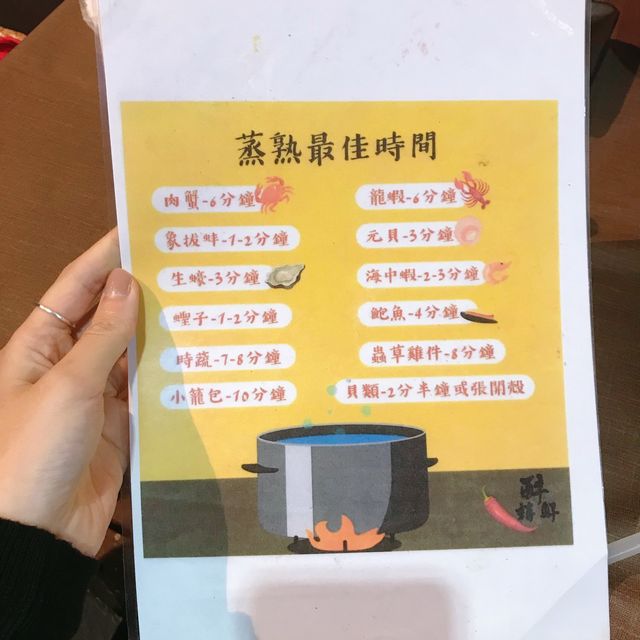 蒸熟最佳時間
肉蟹-6分鐘
龍蝦-6分鐘
象拔蚌-1-2分鐘
元貝-3分鐘
生蠔-3分鐘
海中蝦-2-3分鐘
蟶子-1-2分鐘
鮑魚-4分鐘
時蔬-7-8分鐘
蟲草雞件-8分鐘
小籠包-10分鐘
貝類-2分半鐘或張開殼